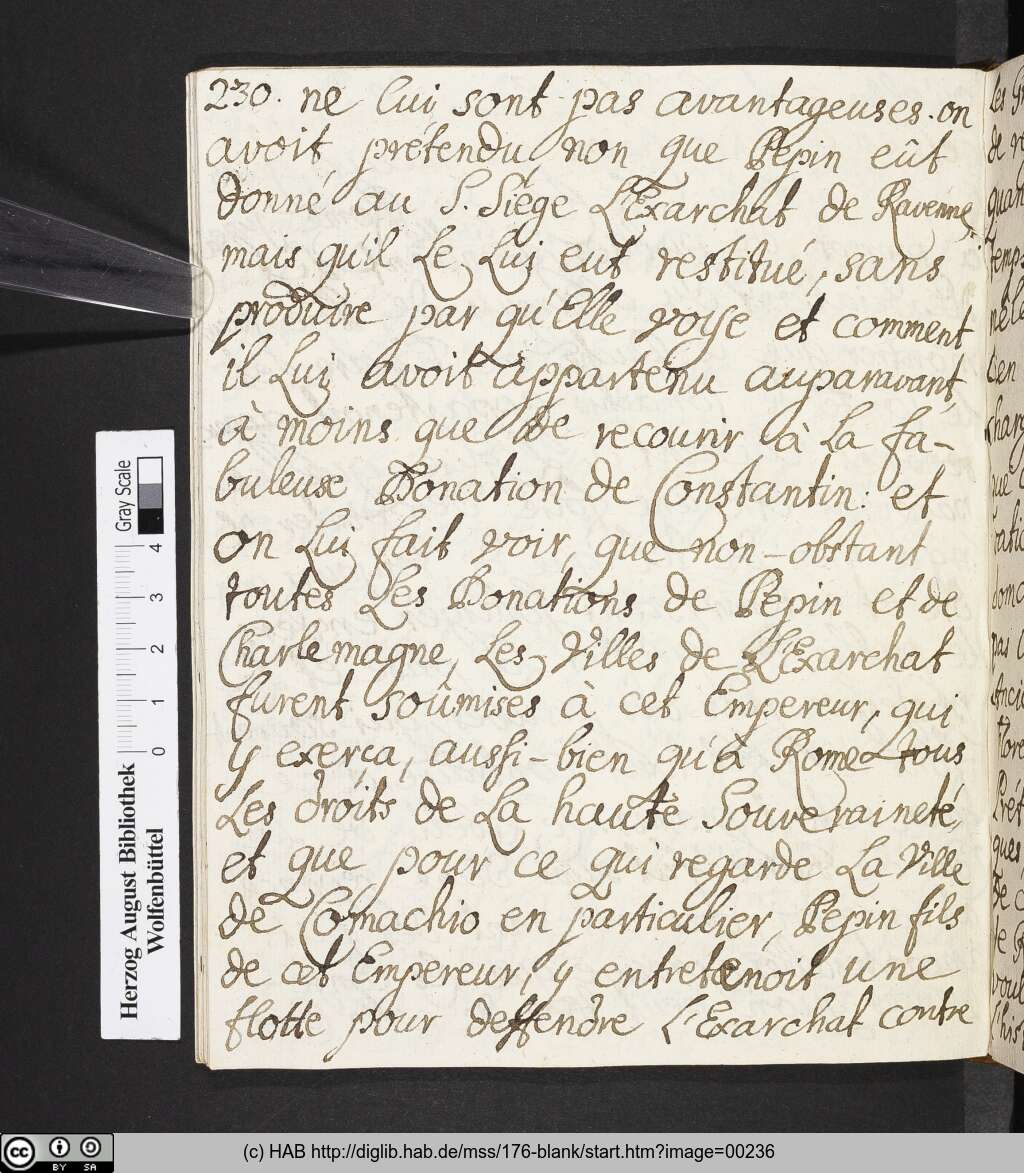 230. ne lui sont pas avantageuses. on
avoit prétendu, non que Pepin eût
donné au S. Siége L'Exarchat de Ravenne,
mais qu'il Le Lui eut restitué, sans
produire par qu'Elle voye et comment
il Lui avoit appartenu auparavant,
à moins que de recourir à La fa-
buleuse Donation de Constantin: et
on Lui fait voir, que non-obstant
toutes Les Donations de Pepin et de
Charlemagne, Les Villes de L'Exarchat
furent soûmises à cet Empereur, qui
y exerça, aussi-bien qu'à Rome tous
Les droits de La haute Souveraineté,
et que pour ce qui regarde La Ville
de Comachio en particulier, Pepin fils
de cet Empereur, y entretenoit une
flotte pour deffendre L'Exarchat contre
Gray Scale
0 1 2 3 4
Herzog August Bibliothek
Wolfenbüttel
cc BY SA
(c) HAB http://diglib.hab.de/mss/176-blank/start.htm?image=00236